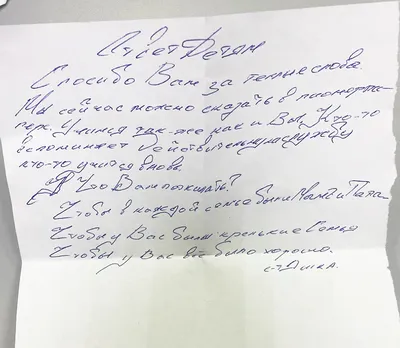 Привет Детям
Спосибо Вам за теплые слова.
Мы сейчас можно сказать в
парк. Учимся так-же как и Вы, Кто-то
вспоминает Действительную службу
кто-то учится вновь.
Что Вам пожелать?
Чтобы в каждой семье были Мама и Папа
Чтобы у Вас были крепкие Семья
Чтобы у Вас всё было хорошо.